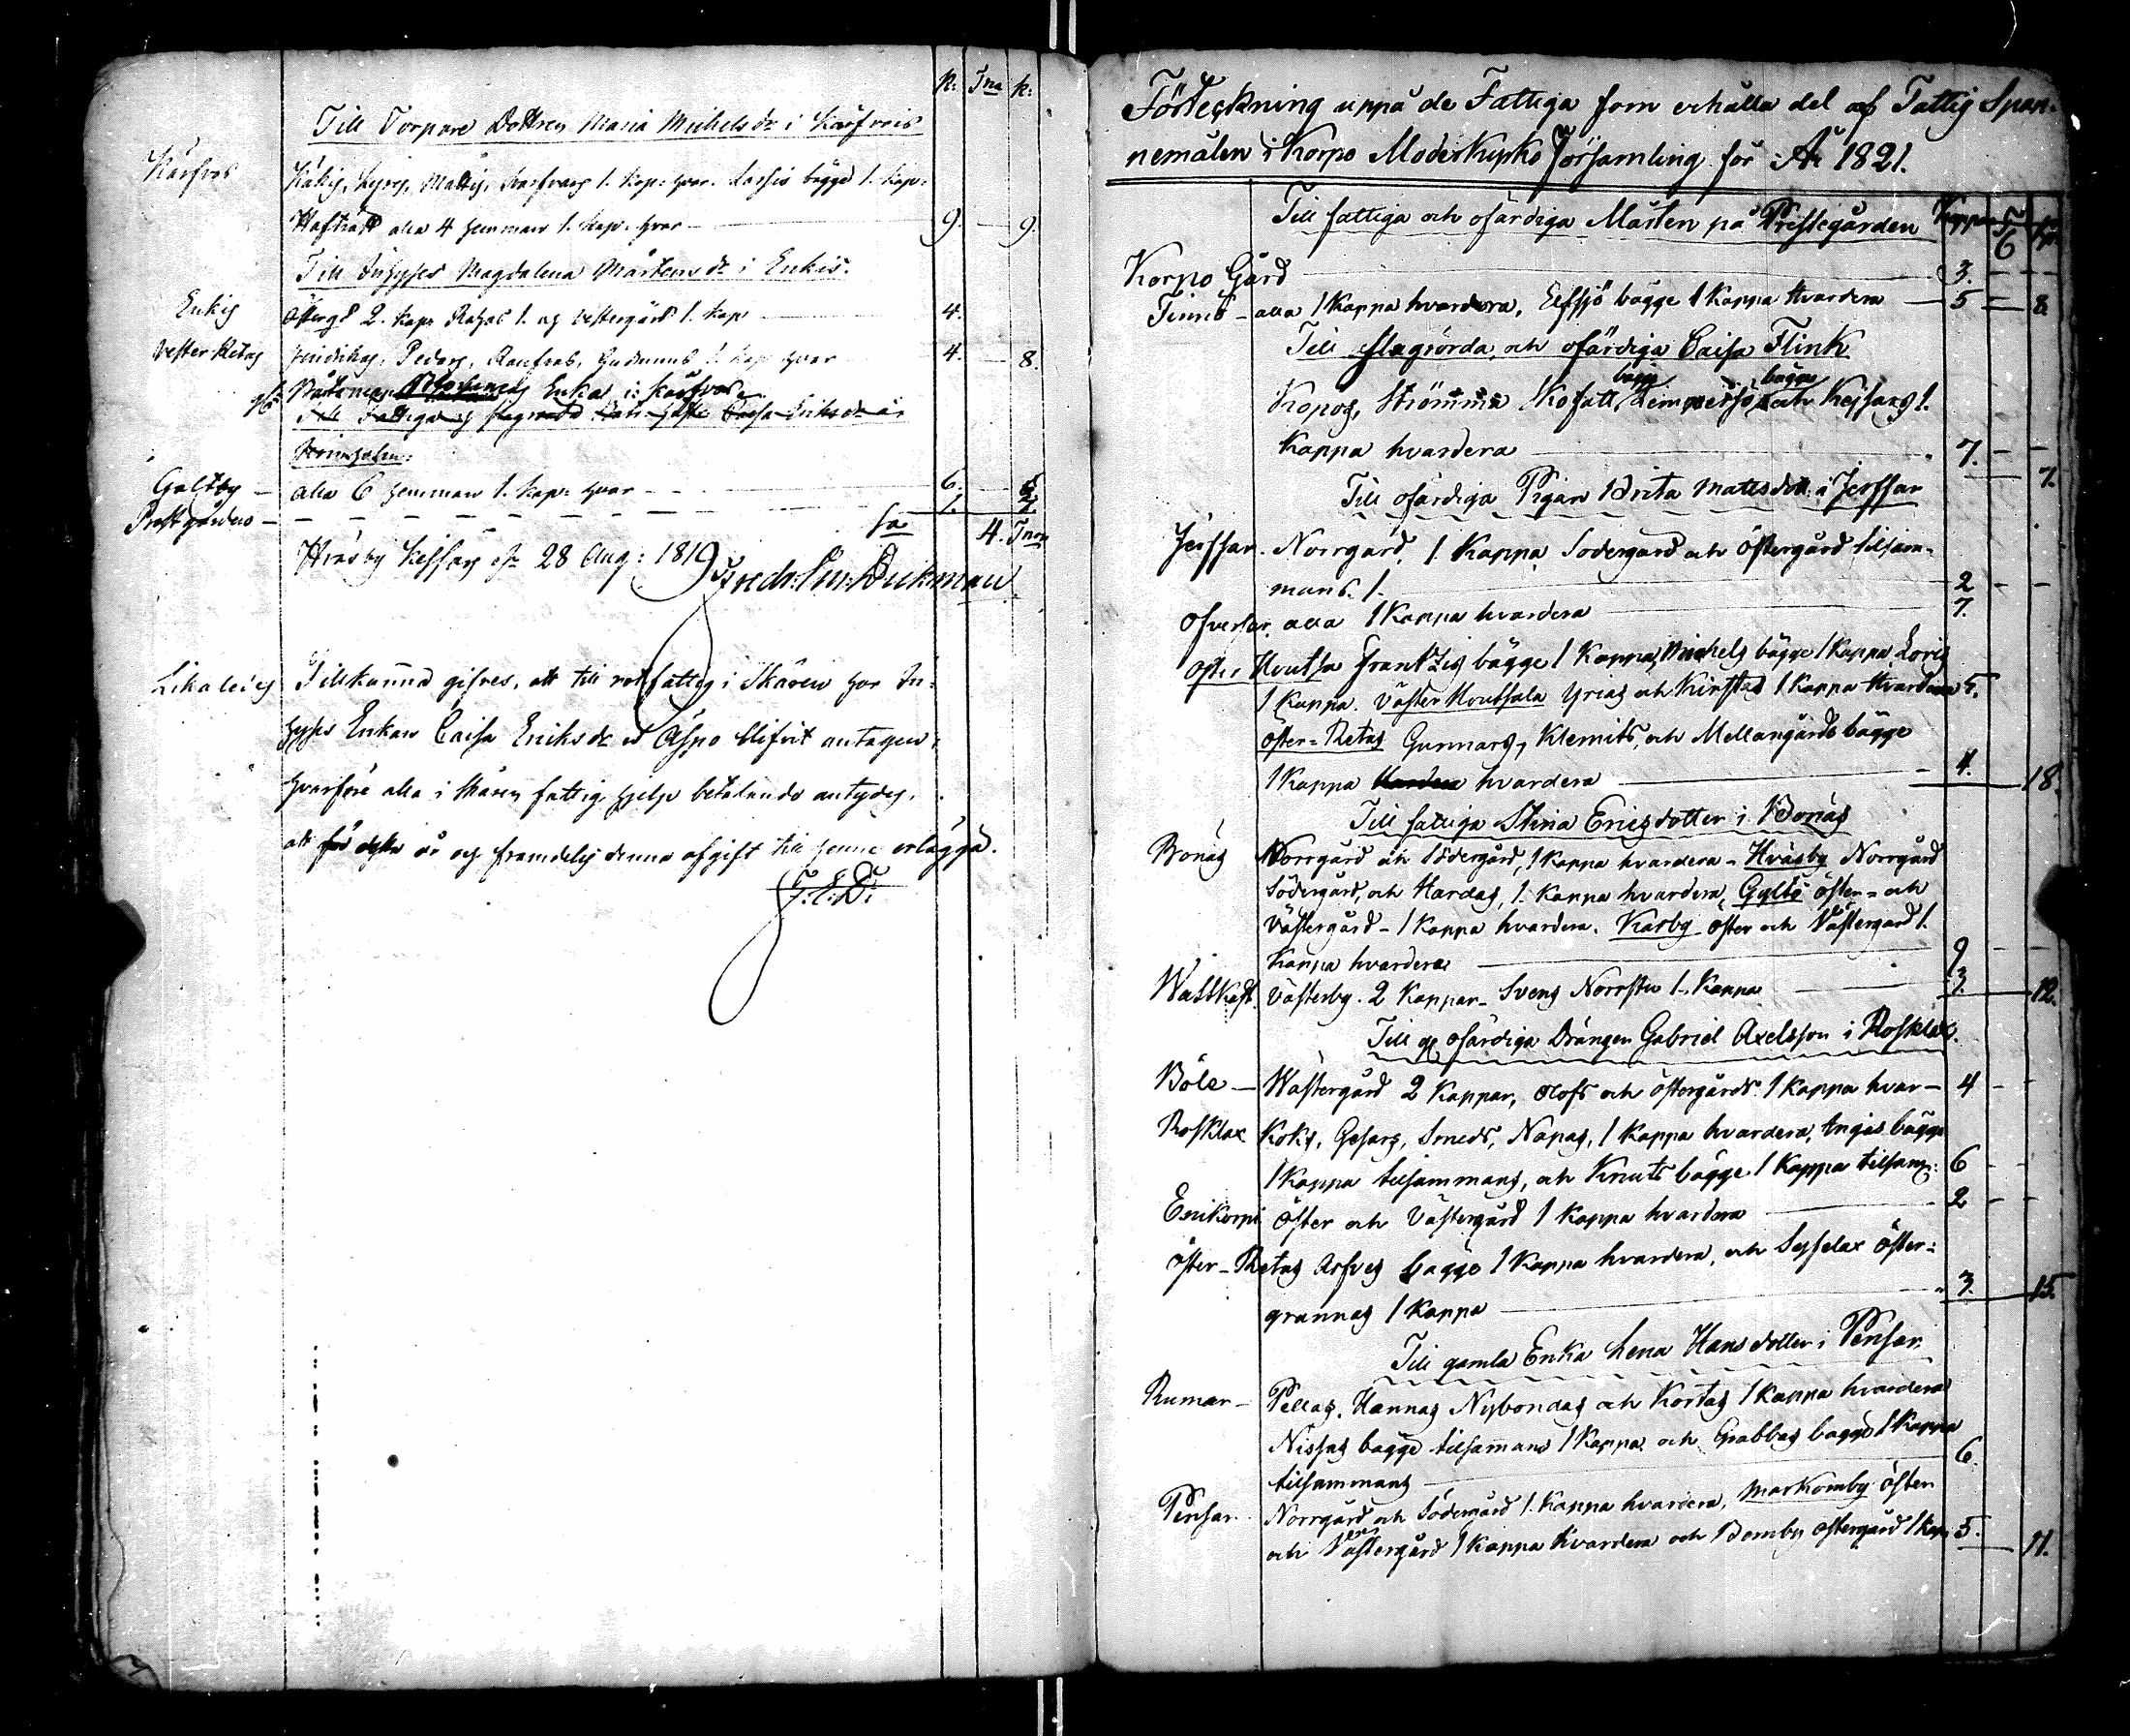 K: Tna K:
Till Torpare Dottren Maria Michels dr i Kårfvois
Kårfvos
Matts, 1. Kap: hvar. Larsis bägge 1. Kap:
alla 4 hemman 1. Kap. hvar 9. 9.
Till Inhyses Magdalena Mårtens dr i Enkis.
Enkis
Östergd 2. Kapr 1. och Vestergård 1. Kap 4.
Vester Retais Hindrikas, Peders, Gudmuns 1. Kap hvar 4. 8.
Enka i Kårfvos
Till Fattiga Caisa Eriksdr
Galtby alla 6 hemman 1. Kapr hvar 6.
Prestgården 1. 7.
Sa 4. Tnor
28 Aug: 1819
Likaledes Tillkänna gifves, att till fattig i Skären har In:
hyses Enkan Caisa Eriksdr i Åspo blifvit antagen,
hvarföre alla i Skären fattig hjelp betalande antydes,
att för detta år och framdeles denna afgift till henne erlägga.
Förteckning uppå de Fattiga som erhålla del af Fattig Span-
nemålen i Korpo Moderkyrko Församling för År 1821.
Till fattiga och ofärdiga Mårten på Prestegården Kappar
Korpo Gård 3.
Finnö alla 1 Kappa hvardera, Elfsjö bägge 1 Kappa Hvardera 5 8
Till slagrörda och ofärdiga Caisa Flink
bägge bägge
Kopos, Strömma och 1.
Kappa hvardera 7. 7.
Till ofärdiga Pigan Brita Mattsdott: i Jerssar
Jerssar. Norrgård, 1 Kappa Södergård och Östergård tilsam-
mans. 1. 2
Öfverkar. alla 1 Kappa hvardera 7.
Öster Houtsa Frantzes bägge 1 Kappa, Michels bägge 1 Kappa,
1 Kappa. Väster Houtsala Yrias och Kirstas 1 Kappa Hvardera 5.
Öster-Retas Gunnars, Klemits, och Mellangårds bägge
1 Kappa hvardera 4. 18.
Till fattiga Stina Ericsdotter i Bonäs
Bonäs Norrgård och Södergård, 1 Kappa hvardera - Hväsby Norrgård
Södergård, och Hardas, 1. Kappa hvardera, Gyltö Öster- och
Västergård - 1 Kappa hvardera. Karby Öster och Västergård 1.
Kappa hvardera 9
Wattkast. Västerby. 2 Kappar - Svens Norrstu 1. Kappa 3. 12.
Till ofärdiga Drängen Gabriel Axelsson i Rosklax.
Böle Wästergård 2 Kappar, Olofs och Östergårds 1 Kappa hvar 4
Rosklax Koks, Gesars, Smeds, Napas, 1 Kappa hvardera, Ingas bägge
1 Kappa tilsammans, och Knuts bägge 1 Kappa tilsam: 6
Enikorpi Öster och Västergård 1 Kappa hvardera 2
Öster-Retas Arfves bägge 1 Kappa hvardera, och Syselax Öster-
grannas 1 Kappa 3. 15.
Till gamla Enka Lena Hansdotter i Pensar.
Rumar Pellas, Hannas Nybondas och Kortas 1 Kappa hvardera
Nissas bägge tilsammans 1 Kappa och Grabbas bägge 1 Kappa
tilsammans 6.
Pensar Norrgård och Södergård 1. Kappa hvardera, Markomby Öster
och Västergård 1 Kappa hvardera och Bomby Östergård 1 Kapp 5. 11.